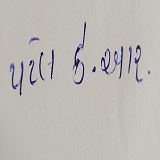 પટેલ કે. આર.